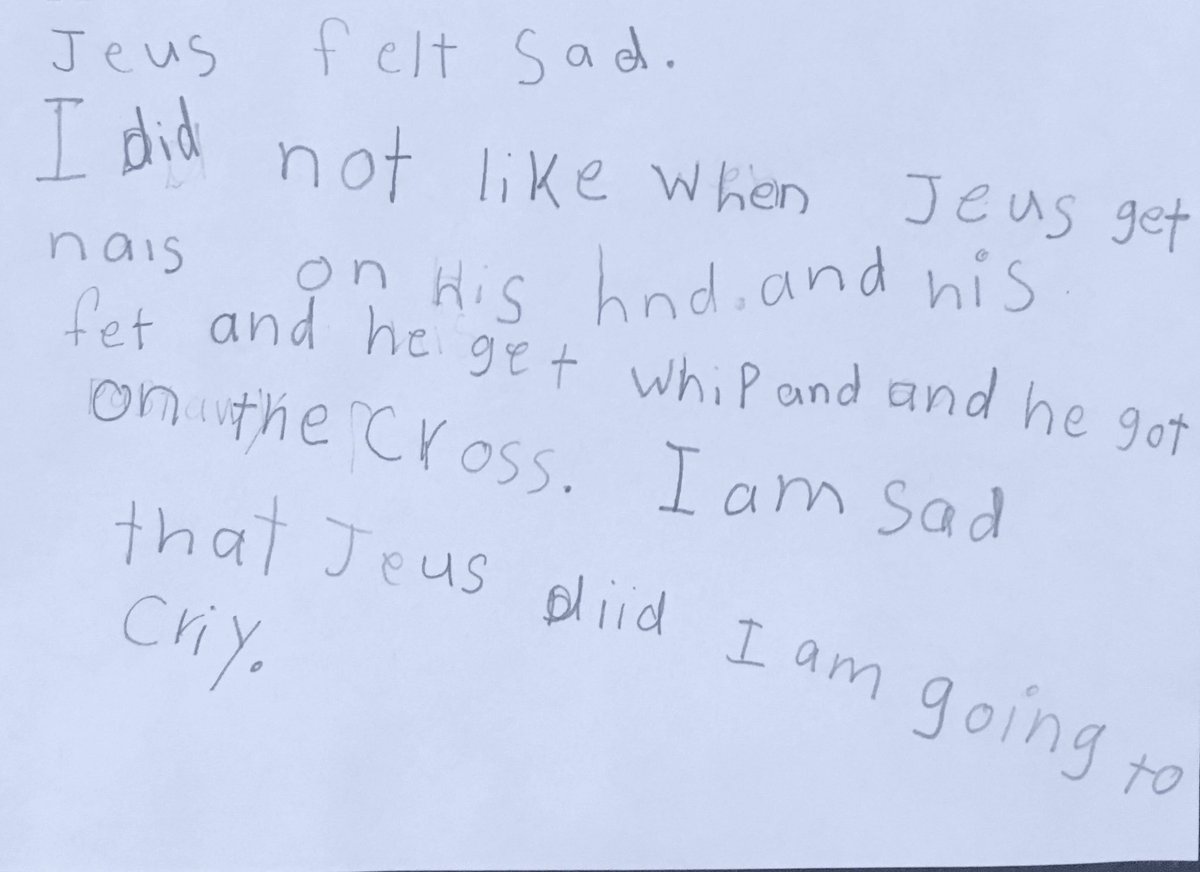 Jeus felt Sad.
I did not like when Jeus get
nais on His hnd. and his
fet and he get whip and and he got
on the Cross. I am sad
that Jeus diid I am going to
Criy.